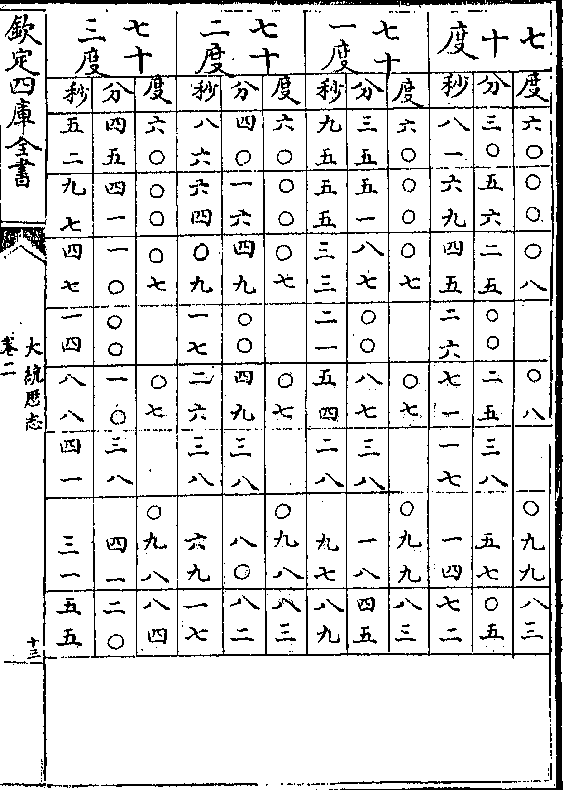 七十度
度 六〇 〇〇 〇八 〇八 〇九九 八三
分 三〇 五六 二五 〇〇 二五 三八 五七 〇五
秒 八一 六九 四五 二六 七一 一七 一四 七二
七十一度
度 六〇 〇〇 〇七 〇七 〇九九 八三
分 三五 五一 八七 〇〇 八七 三八 一八 四五
秒 九五 五五 三三 二一 五四 二八 九七 八九
七十二度
度 六〇 〇〇 〇七 〇七 〇九八 八三
分 四〇 一六 四九 〇〇 四九 三八 八〇 八二
秒 八六 六四 〇九 一七 二六 三八 六九 一七
七十三度
度 六〇 〇〇 〇七 〇七 〇九八 八四
分 四五 四一 一〇 〇〇 一〇 三八 四一 二〇
秒 五二 九七 四七 一四 八八 四一 三一 五五
欽定四庫全書
大統厯志
卷二
十三